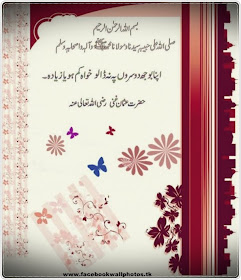 بسم اللہ الرحمٰن الرحیم
صلی اللہ علیٰ حبیبہ سیدنا و مولانا محمد ﷺ وآلہ واصحابہ وسلم
اپنا بوجھ دوسروں پہ نہ ڈالو خواہ کم ہو یا زیادہ۔
حضرت عثمان غنی رضی اللہ تعالیٰ عنہ
www.facebookwallphotos.tk